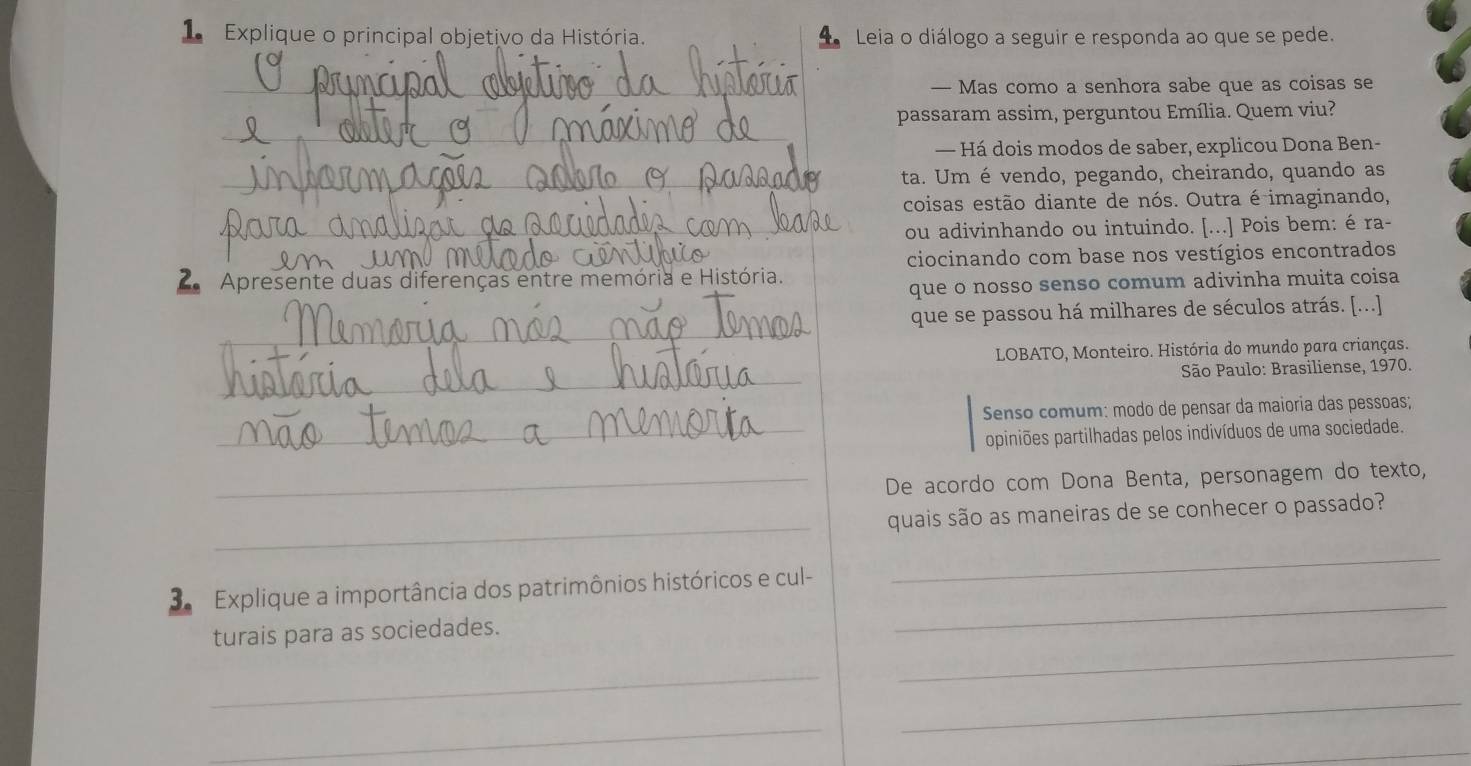 1. Explique o principal objetivo da História.
O principal objetivo da história
e obter o máximo de
informações sobre o passado
para analisar as sociedades com base
em um metodo ciêntifico
2. Apresente duas diferenças entre memória e História.
Memoria nós não Temos
história dela e história
não temos a memoria
3. Explique a importância dos patrimônios históricos e cul-
turais para as sociedades.
4. Leia o diálogo a seguir e responda ao que se pede.
— Mas como a senhora sabe que as coisas se
passaram assim, perguntou Emília. Quem viu?
— Há dois modos de saber, explicou Dona Ben-
ta. Um é vendo, pegando, cheirando, quando as
coisas estão diante de nós. Outra é imaginando,
ou adivinhando ou intuindo. [...] Pois bem: é ra-
ciocinando com base nos vestígios encontrados
que o nosso senso comum adivinha muita coisa
que se passou há milhares de séculos atrás. [...]
LOBATO, Monteiro. História do mundo para crianças.
São Paulo: Brasiliense, 1970.
Senso comum: modo de pensar da maioria das pessoas;
opiniões partilhadas pelos indivíduos de uma sociedade.
De acordo com Dona Benta, personagem do texto,
quais são as maneiras de se conhecer o passado?